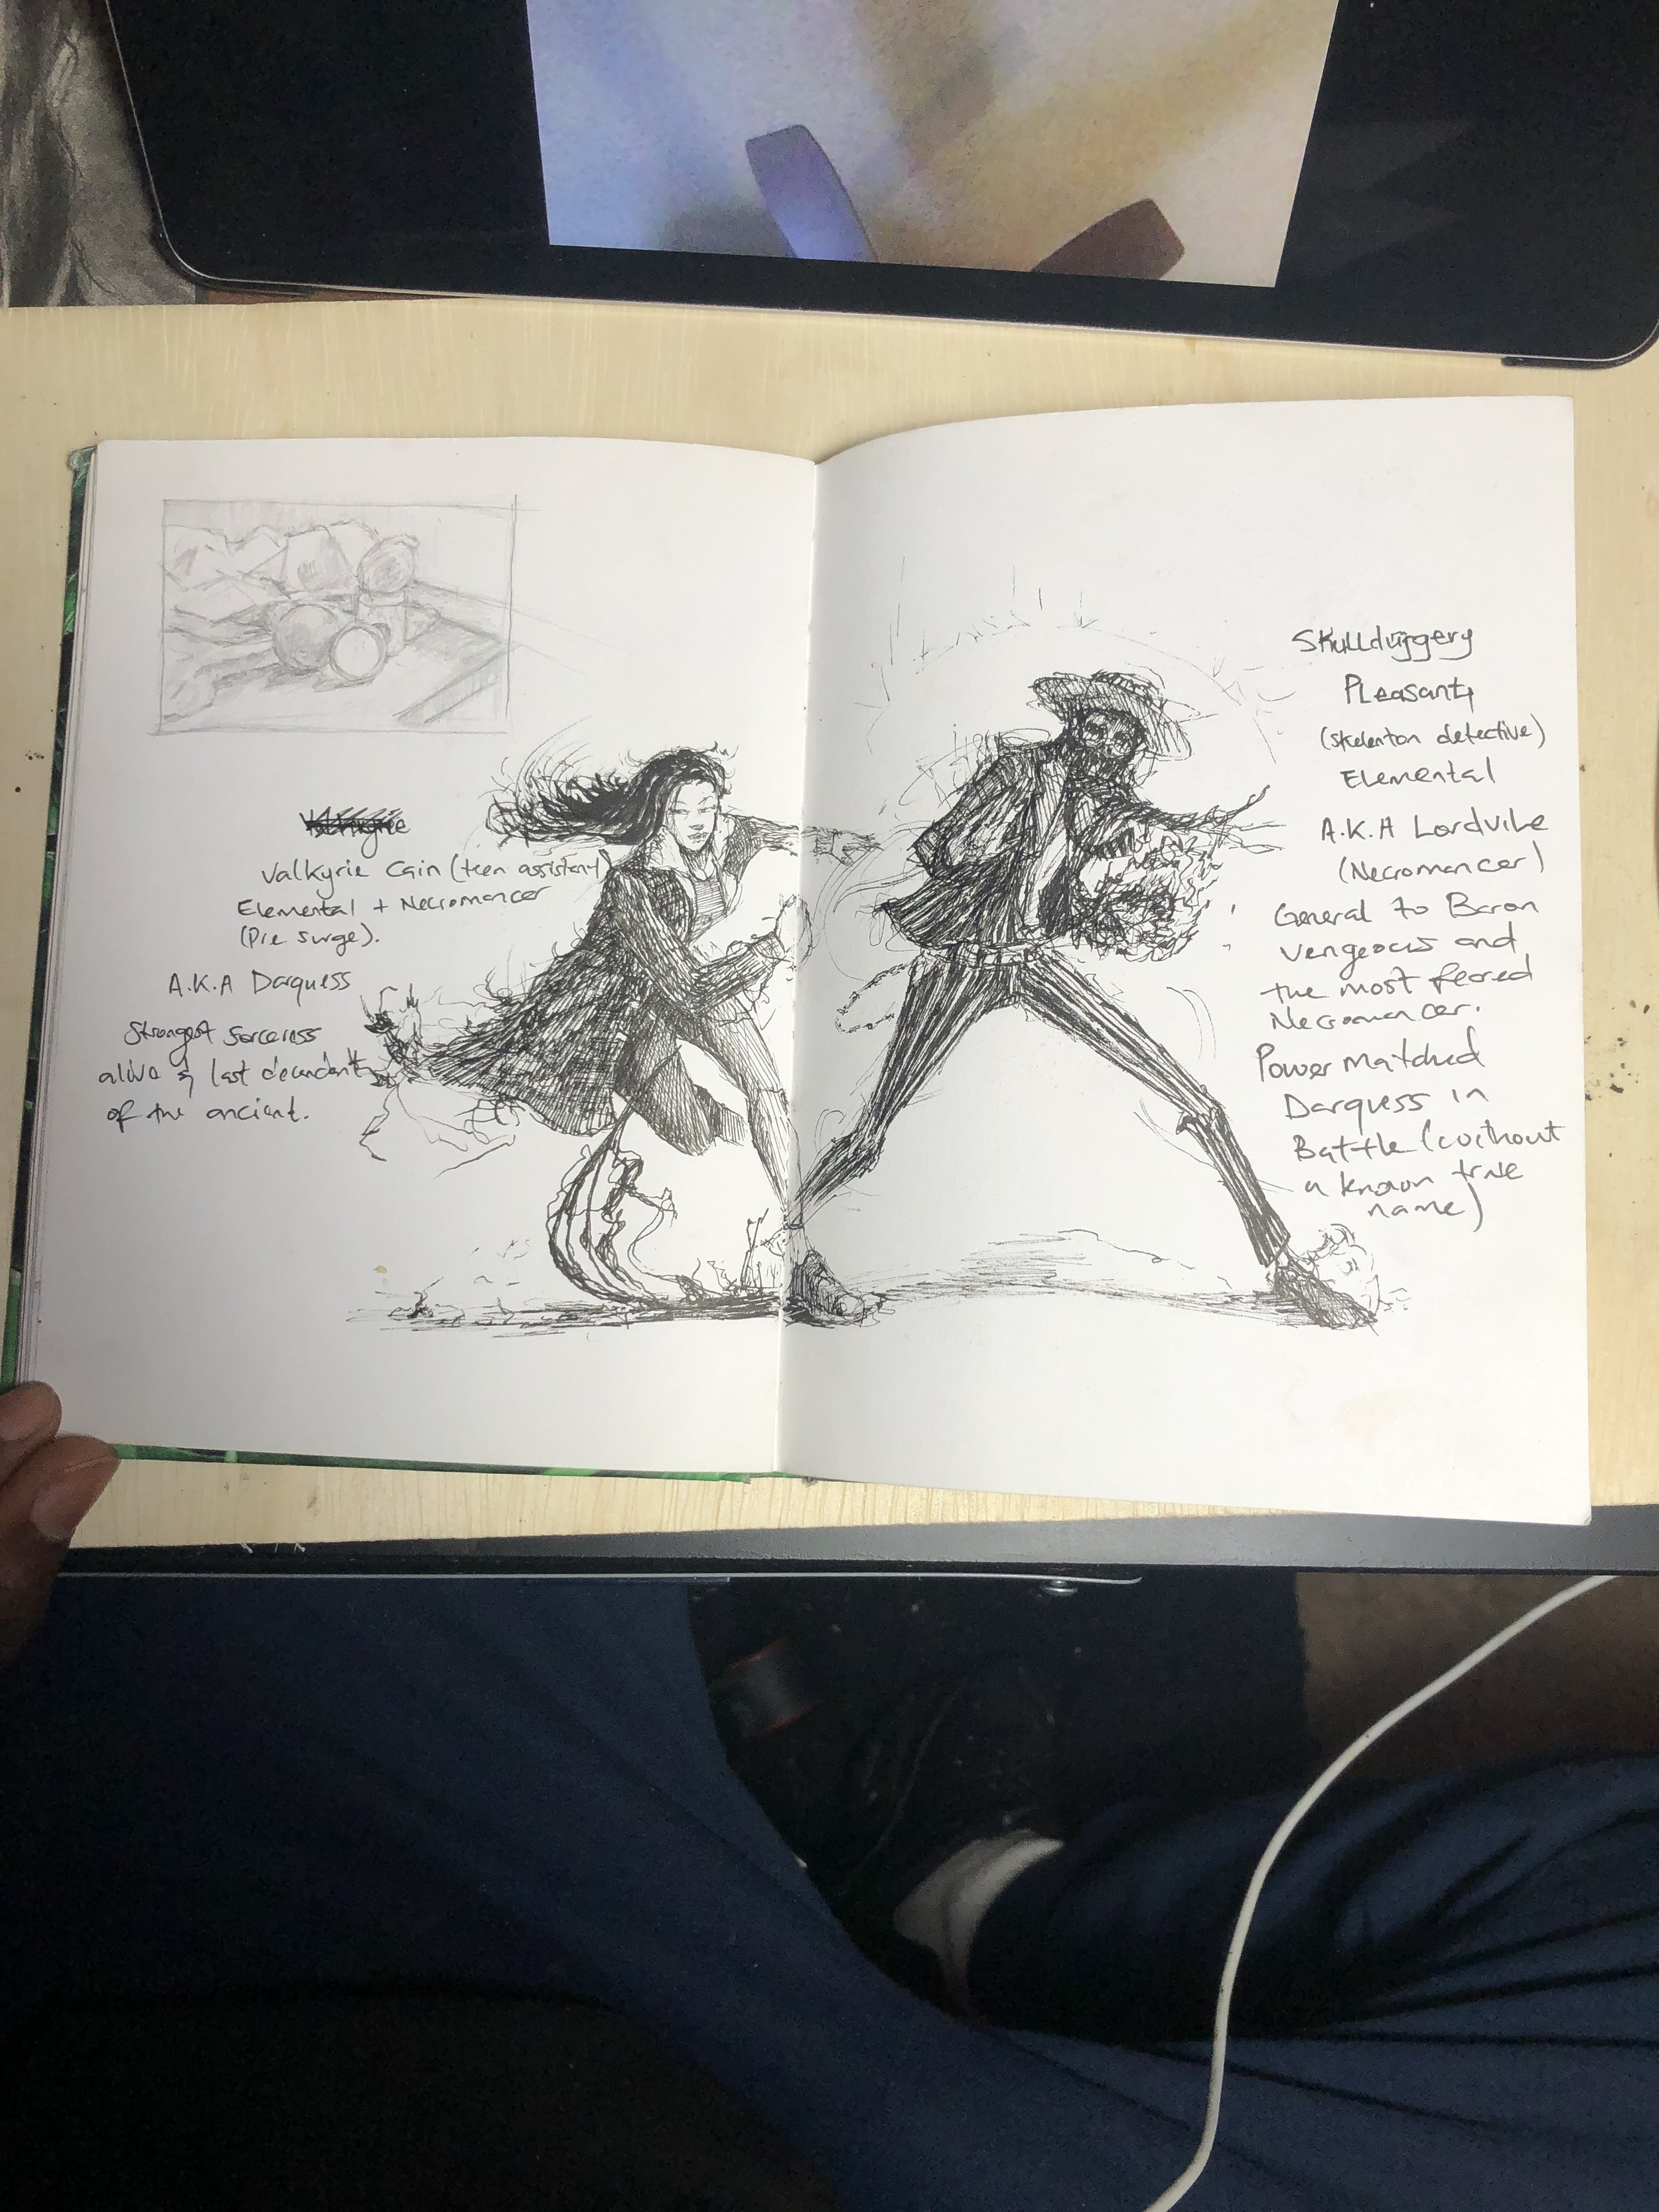 Valkyrie
Valkyrie Cain (teen assistant)
Elemental + Necromancer
(Pre surge).
A.K.A Darquess
Strongest sorceress
alive & last decendant
of the ancient.
Skullduggery
Pleasant,
(Skelenton detective)
Elemental
A.K.A Lordvile
(Necromancer)
General to Baron
vengeous and
the most feared
Necromancer.
Power matched
Darquess in
Battle (without
a known true
name)